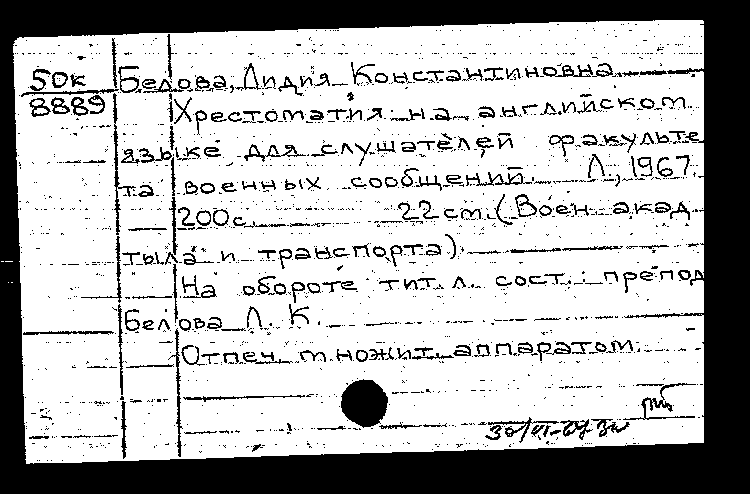 50к
8889
Белова, Лидия Константиновна
Хрестоматия на английском
языке для слушателей факульте
та военных сообщений. Л., 1967.
200с. 22 cm. (Воен. акад.
тыла и транспорта).
На обороте тит. л. сост.: препод
Белова Л. К.
Отпеч. множит. аппаратом.